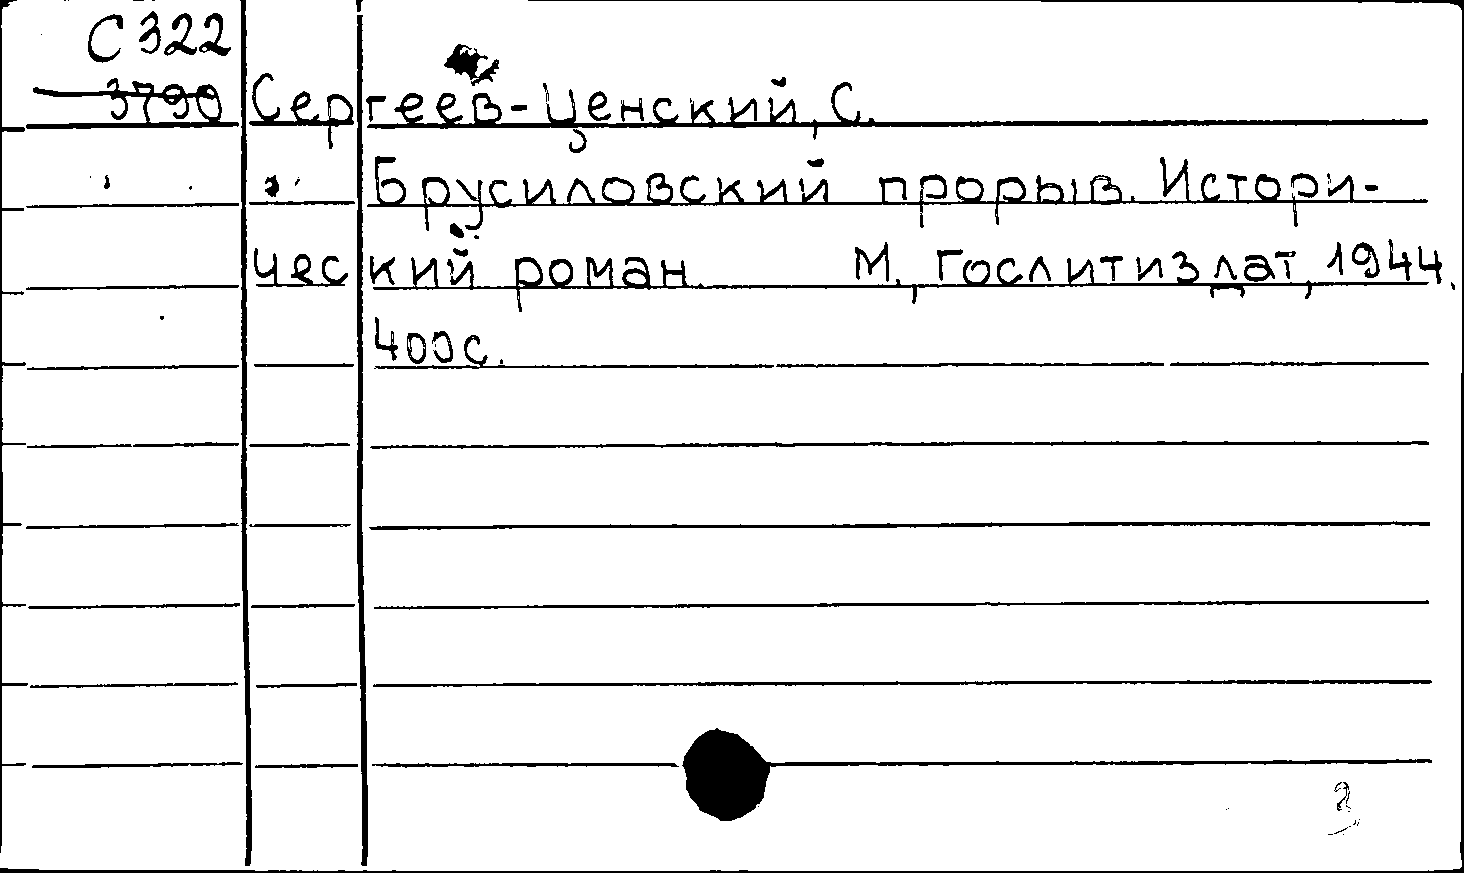 С 322
3790 Сергеев-Ценский, С.
Брусиловский прорыв. Истори-
ческий роман. М., Гослитиздат, 1944.
400с.